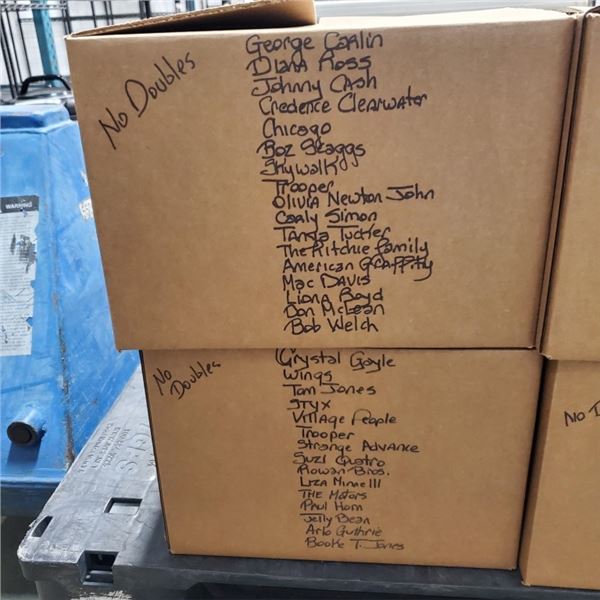 No Doubles
George Carlin
Diana Ross
Johnny Cash
Credence Clearwater
Chicago
Boz Scaggs
Skywalk
Trooper
Olivia Newton John
Carly Simon
Tanya Tucker
The Ritchie Family
American Graffity
Mac Davis
Liona Boyd
Don McLean
Bob Welch
No
Doubles
Crystal Gayle
Wings
Tom Jones
Styx
Village People
Trooper
Strange Advance
Suzi Quatro
Rowan Bros.
Liza Minelli
The Motors
Paul Horn
Jelly Bean
Arlo Guthrie
Booke T. Jones
No
WARNING